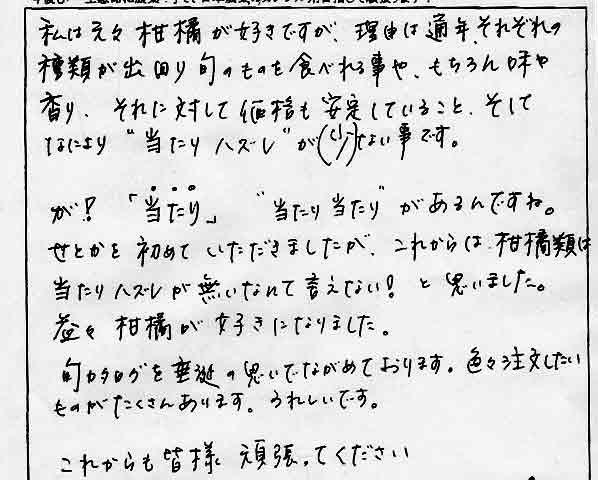 私は元々柑橘が好きですが、理由は通年、それぞれの
種類が出回り旬のものを食べれる事や、もちろん味や
香り、それに対して価格も安定していること、そして
なにより“当たりハズレ”が(少)ない事です。
が!「当たり」“当たり当たり”があるんですね。
せとかを初めていただきましたが、これからは、柑橘類は
当たりハズレが無いなんて言えない!と思いました。
益々柑橘が好きになりました。
旬カタログを垂涎の思いでながめております。色々注文したい
ものがたくさんあります。うれしいです。
これからも皆様頑張ってください